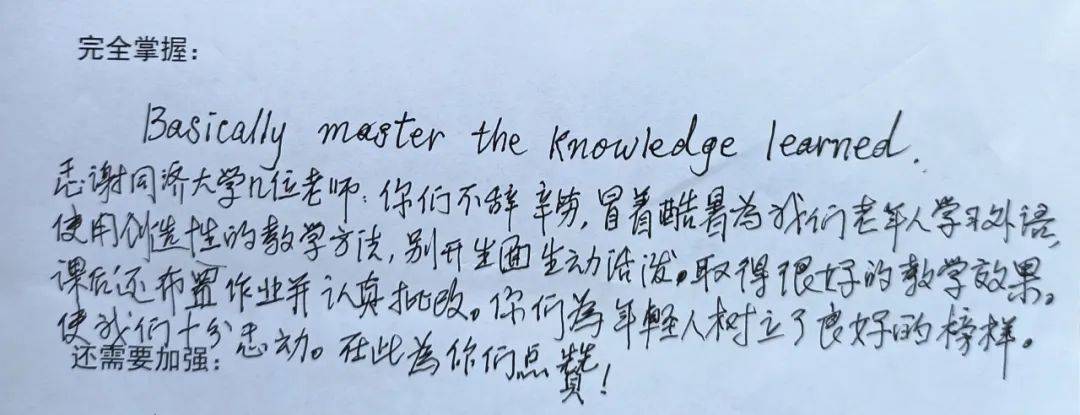 完全掌握：
Basically master the knowledge learned.
感谢同济大学几位老师：你们不辞辛劳，冒着酷暑為我们老年人学习外语，
使用创造性的教学方法，别开生面生动活泼。取得很好的教学效果。
课后还布置作业并认真批改。你们為年輕人树立了良好的榜样。
使我们十分感动。在此為你们点贊！
还需要加强：